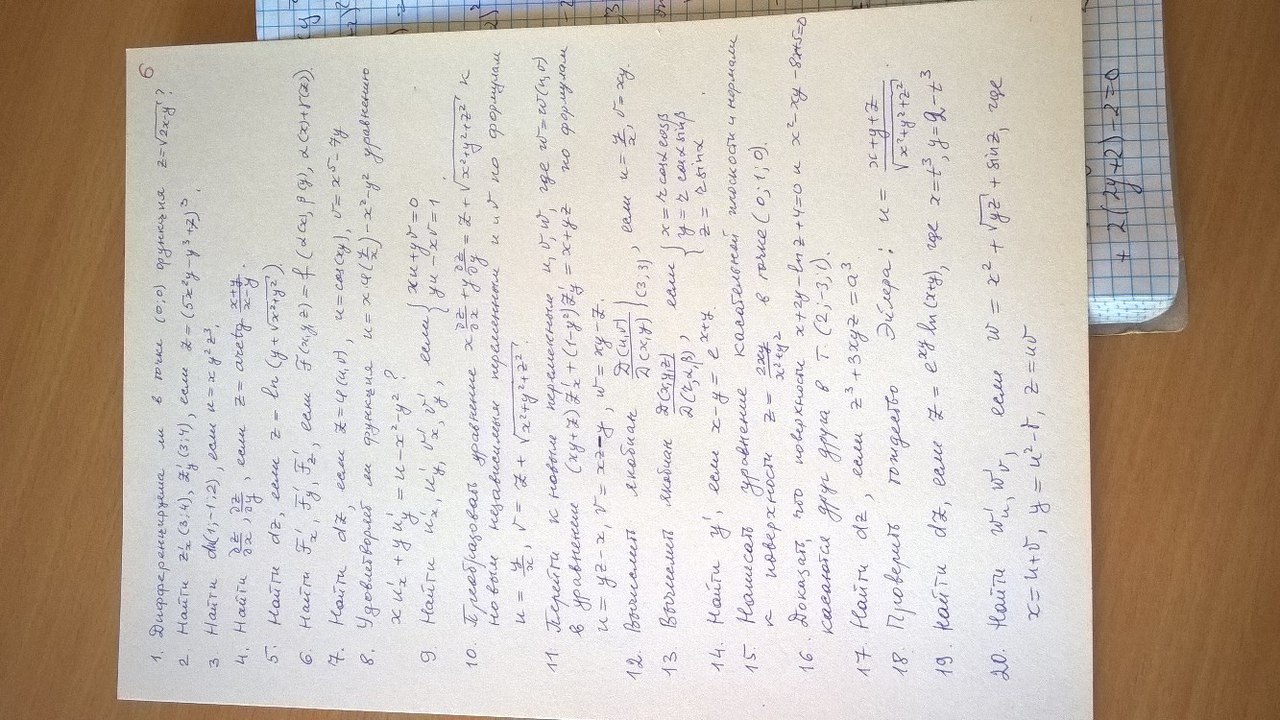 6
1. Дифференцируема ли в точке (0;0) функция z=√(2x-y)?
2. Найти z'x(3;4), z'y(3;4), если z=(5x²y-y³+7)³.
3. Найти du(1;-1;2), если u=xy²z³.
4. Найти ∂z/∂x, ∂z/∂y, если z=arctg (x+y)/(x-y).
5. Найти dz, если z=ln(y+√(x²+y²)).
6. Найти F'x, F'y, F'z, если F(x,y,z)=f(α(x), β(y), α(x)+γ(z)).
7. Найти dz, если z=φ(u,v), u=cos(xy), v=x⁵-7y
8. Удовлетворяет ли функция u=x·φ(y/x)-x²-y² уравнению
xu'x+yu'y=u-x²-y²?
9. Найти u'x, u'y, v'x, v'y, если { xu+yv=0
yu-xv=1.
10. Преобразовать уравнение x ∂z/∂x + y ∂z/∂y = z+√(x²+y²+z²) к
новым независимым переменным u и v по формулам
u=y/x, v=z+√(x²+y²+z²).
11 Перейти к новым переменным u,v,w, где w=w(u,v)
в уравнение (xy+z)z'x+(1-y²)z'y=x+yz по формулам
u=yz-x, v=xz-y, w=xy-z.
12. Вычислить якобиан D(u,v)/D(x,y)|(3,3), если u=y/x, v=xy.
13. Вычислить якобиан D(x,y,z)/D(r,α,β), если { x=r cosα cosβ
y=r cosα sinβ
z=r sinα.
14. Найти y', если x-y=e^(x+y).
15. Написать уравнение касательной плоскости и нормали
к поверхности z=2xy/(x²+y²) в точке (0;1;0).
16. Доказать, что поверхности x+2y-ln z+4=0 и x²-xy-8x+5=0
касаются друг друга в т. (2;-3;1).
17. Найти dz, если z³+3xyz=a³
18. Проверить тождество Эйлера: u=(x+y+z)/√(x²+y²+z²).
19. Найти dz, если z=e^(xy) ln(x+y), где x=t³, y=2-t³
20. Найти w'u, w'v, если w=x²+√(yz)+sin z, где
x=u+v, y=u²-v, z=uv
+2(2y+2)-2=0